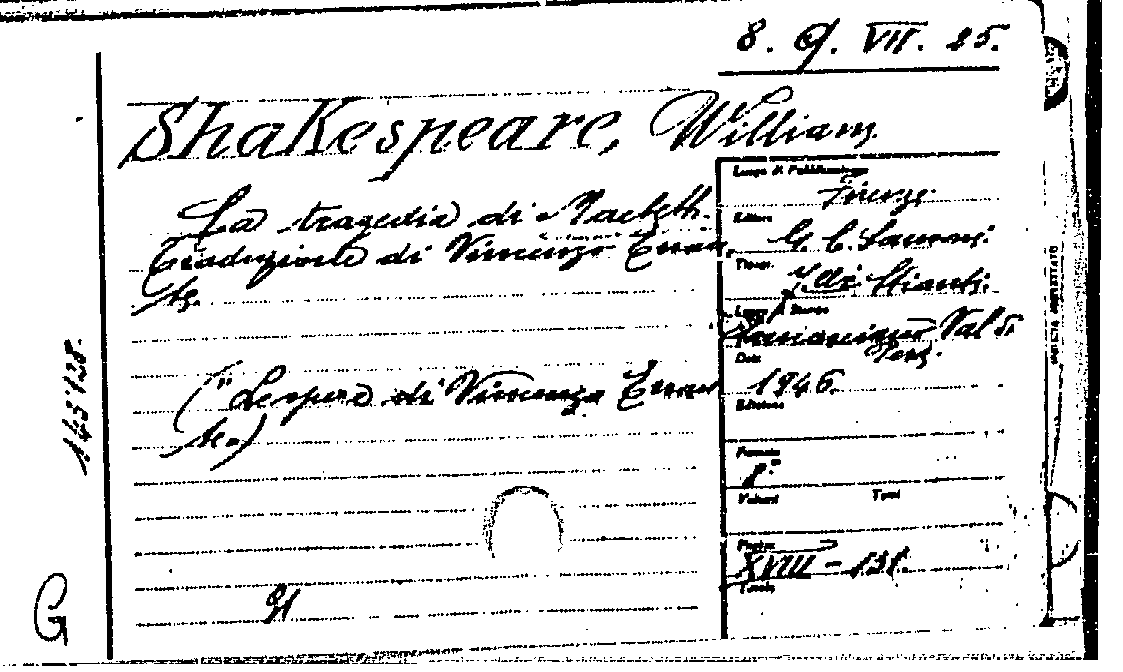 8. G. VII. 25.
Shakespeare, William.
La tragedia di Macbeth.
Traduzione di Vincenzo Erran
te.
("Le opere di Vincenzo Erran
te.)
Luogo di Pubblicazione
Firenze.
Editore
G. C. Sansoni.
Tipogr.
f.lli Stianti.
Luogo di Stampa
Sancasciano Val di
Pesa.
Data
1946.
Edizione
Formato
8°
Volumi Tomi
Pagine
XVIII - 131.
Tavole
143128.
G